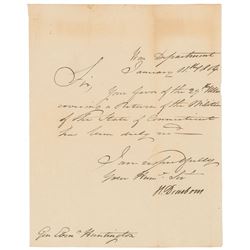 War Department
January 11th 1804
Sir,
Your favor of the 29th Ulto
covering a Return of the Militia
of the State of Connecticut
has been duly
I am respectfully
Your Humb. Sert
H. Dearborn
Gen. Eben. Huntington